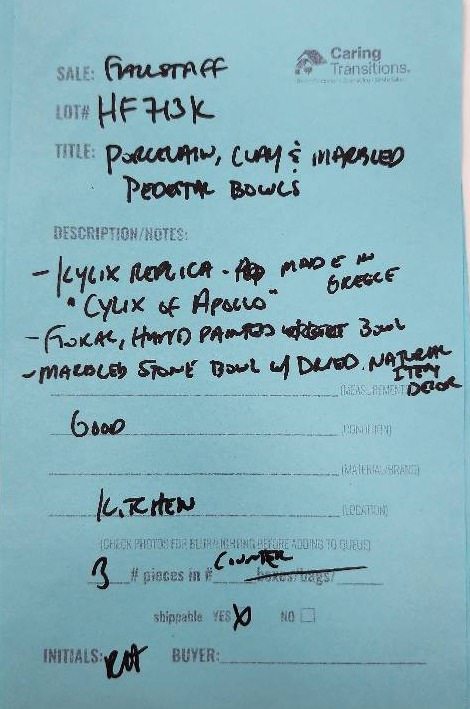 Caring
Transitions.
SALE: FALLSTAFF
LOT# HF713K
TITLE: PORCELAIN, CLAY & MARBLED
PEDESTAL BOWLS
DESCRIPTION/NOTES:
- KYLIX REPLICA - MADE IN
GREECE
"CYLIX OF APOLLO"
- FLORAL, HAND PAINTED BOWL
- MARBLED STONE BOWL W/ DRIED NATURAL
ITEM
DECOR
(MEASUREMENT)
GOOD
(CONDITION)
(MATERIAL/BRAND)
KITCHEN
(LOCATION)
(CHECK PHOTOS FOR BLUR/LIGHTING BEFORE ADDING TO QUEUE)
3 # pieces in # COUNTER boxes/bags/
shippable YES X NO
INITIALS: BUYER: